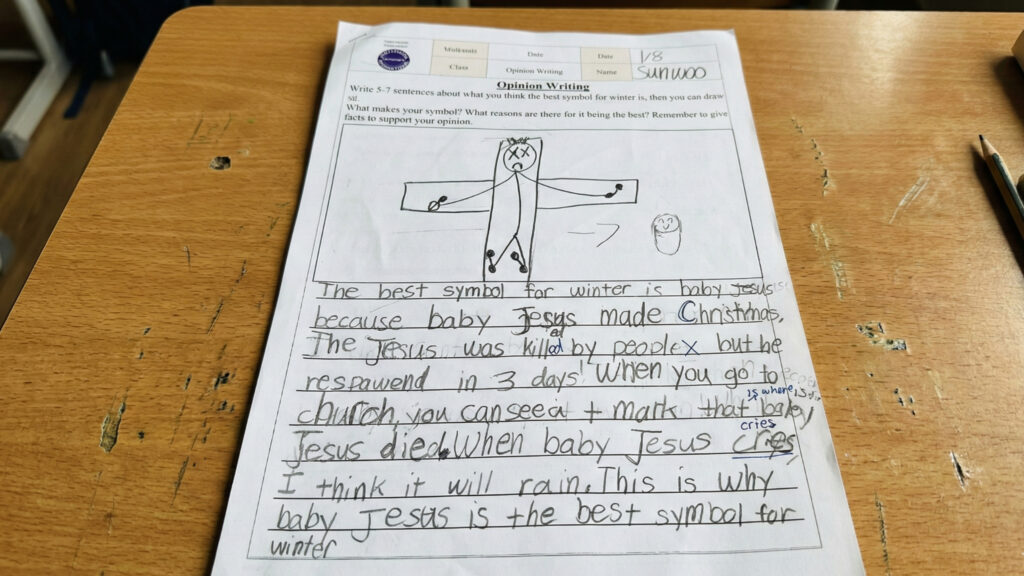 Date
Date
1/8
Class
Opinion Writing
Name
Sunwoo
Opinion Writing
Write 5-7 sentences about what you think the best symbol for winter is, then you can draw
What makes your symbol? What reasons are there for it being the best? Remember to give
facts to support your opinion.
The best symbol for winter is baby Jesus
because baby Jesus made Christmas,
The Jesus was killed by people x but he
respawend in 3 days! When you go to
is where
church, you can see a + mark that baby
cries
Jesus died. When baby Jesus cries
I think it will rain. This is why
baby Jesus is the best symbol for
winter